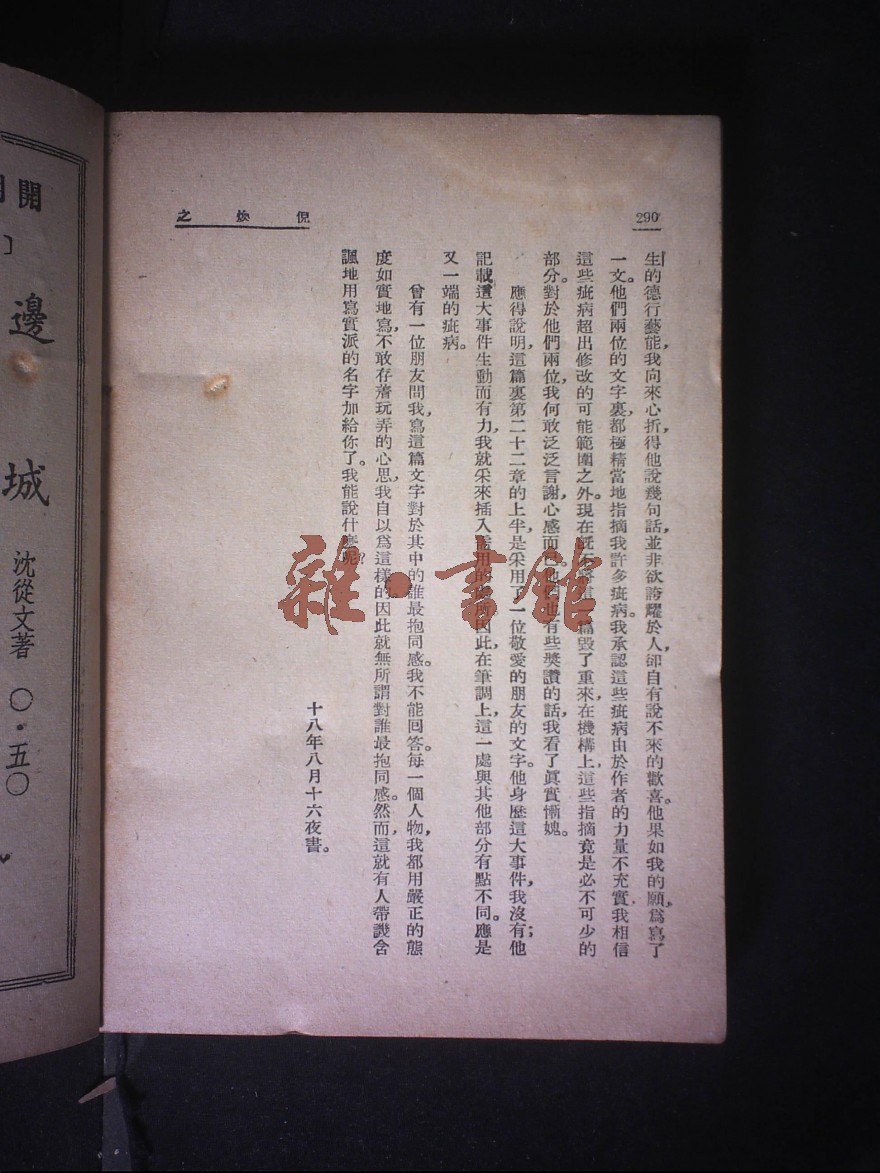 290
倪煥之
生的德行藝能，我向來心折，得他說幾句話，並非欲誇耀於人，卻自有說不來的歡喜。他果如我的願，爲寫了
一文。他們兩位的文字裏，都極精當地指摘我許多疵病。我承認這些疵病由於作者的力量不充實，我相信
這些疵病超出修改的可能範圍之外。現在旣不將這一篇毀了重來，在機構上，這些指摘竟是必不可少的
部分。對於他們兩位，我何敢泛泛言謝，心感而已。他們也有些獎讚的話，我看了眞實慚媿。
應得說明，這篇裏第二十二章的上半，是采用了一位敬愛的朋友的文字。他身歷這大事件，我沒有他；
記載這大事件生動而有力，我就采來插入需用的處所。因此，在筆調上，這一處與其他部分有點不同。應是
又一端的疵病。
曾有一位朋友問我，寫這篇文字對於其中的誰最抱同感。我不能回答。每一個人物，我都用嚴正的態
度如實地寫，不敢存着玩弄的心思，我自以爲這樣的。因此就無所謂對誰最抱同感。然而，這就有人帶譏含
諷地用寫實派的名字加給你了。我能說什麼呢？
十八年八月十六夜書。
雜·書館
開
邊城
沈從文著
〇·五〇